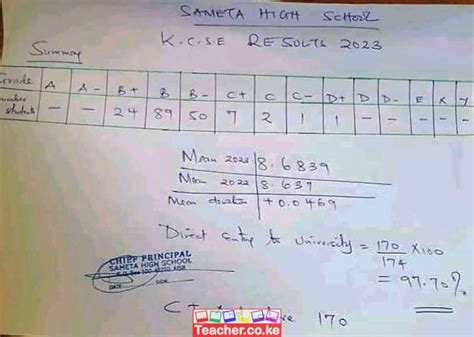 SAMETA HIGH SCHOOL
K.C.S.E RESULTS 2023
Summary
Grade A A- B+ B B- C+ C C- D+ D D- E X Y
Number students — — 24 89 50 7 2 1 1 — — — — —
Mean 2023 8.6839
Mean 2022 8.637
Mean deviation +0.0469
Direct entry to university = 170 x100
174
= 97.70%
CHIEF PRINCIPAL
SAMETA HIGH SCHOOL
DATE SIGN
C+ 170
Teacher.co.ke